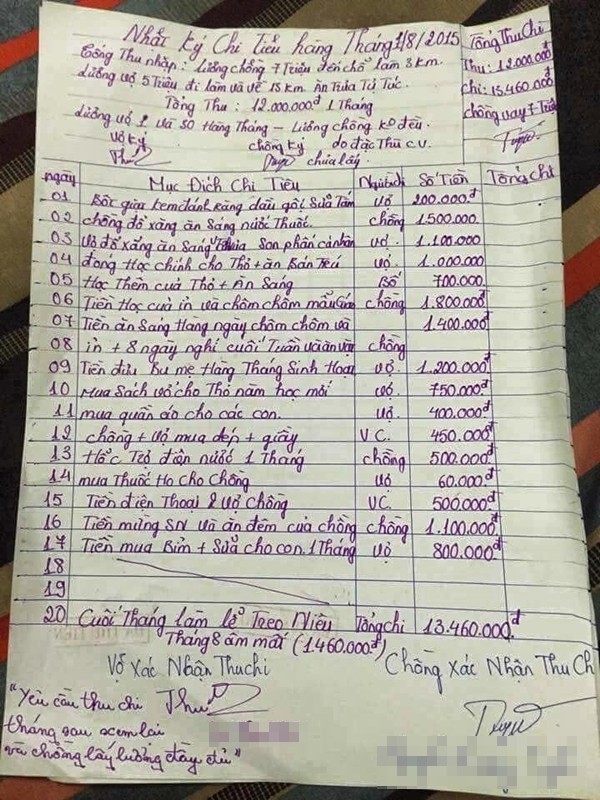 Nhật Ký Chi Tiêu hàng Tháng 1/8/2015
Tổng Thu Chi
Tổng Thu nhập: Lương chồng 7 Triệu đến chỗ làm 3 km.
Thu: 12.000.000đ
Lương vợ 5 Triệu đi làm và về 15 km. Ăn Trưa Tự Túc.
Chi: 13.460.000đ
Tổng Thu: 12.000.000đ 1 Tháng
chồng vay 7 Triệu
Lương vợ 2 và 30 Hàng Tháng – Lương chồng ko đều.
Vợ Ký chồng Ký do đặc Thù C.V.
chưa lấy.
ngày Mục Đích Chi Tiêu Người chi Số Tiền Tổng chi
01 Bột giặt kem đánh răng dầu gội Sữa Tắm vợ 200.000đ
02 chồng đổ xăng ăn Sáng nước Thuốc. chồng 1500.000
03 Vợ đổ xăng ăn Sáng Son phấn cá nhân vợ. 1.100.000
04 đóng Học chính cho Thỏ + ăn Bán Trú vợ. 1.000.000
05 Học Thêm của Thỏ + Ăn Sáng Bố 700.000
06 Tiền Học của in và chôm chôm mẫu giáo chồng 1.800.000
07 Tiền ăn Sang Hàng ngày chôm chôm và 1.400.000
08 in + 8 ngày nghỉ cuối Tuần và ăn vặt chồng
09 Tiền điếu Bu mẹ Hàng Tháng Sinh Hoạt vợ. 1.200.000đ
10 Mua Sách vở cho Thỏ năm học mới vợ. 750.000đ
11 mua quần áo cho các con. vợ. 400.000đ
12 chồng + vợ mua dép + giầy V C. 450.000đ
13 Hốc Trợ điện nước 1 Tháng chồng 500.000đ
14 mua Thuốc Ho cho Chồng vợ 60.000đ
15 Tiền điện Thoại 2 Vợ chồng VC. 500.000đ
16 Tiền mừng SN và ăn đêm của chồng chồng 1.100.000đ
17 Tiền mua Bỉm + Sữa cho con 1 Tháng vợ 800.000đ
18
19
20 Cuối Tháng làm lễ Treo Niêu Tổng chi 13.460.000đ
Tháng 8 âm mất (1.460.000đ)
Vợ Xác Nhận Thu chi Chồng Xác Nhận Thu Ch
"Yêu cầu thu chi
tháng sau xem lại
và chồng lấy lương đầy đủ"